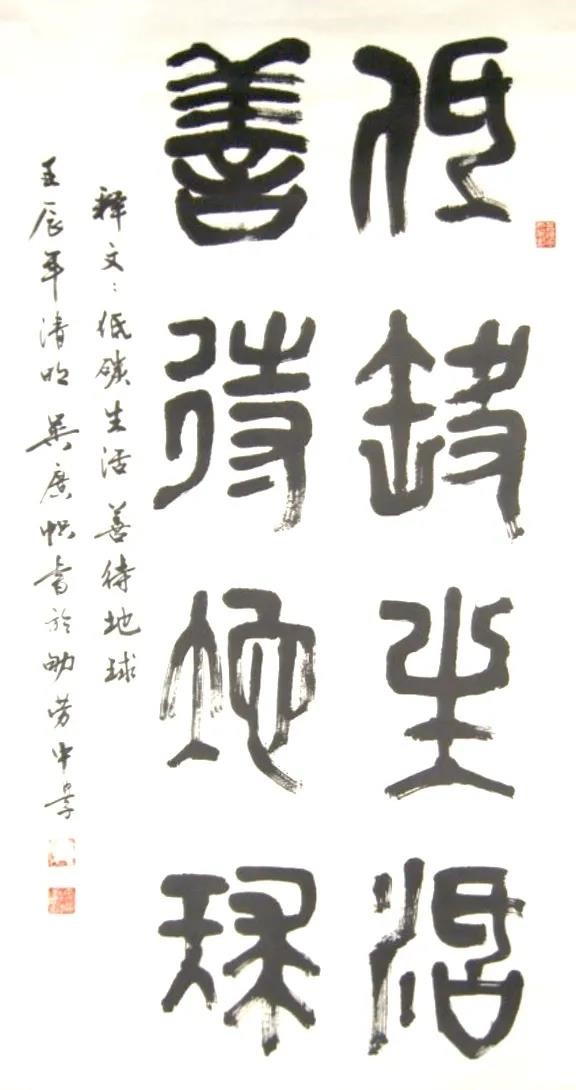 低碳生活
善待地球
释文：低碳生活 善待地球
壬辰年清明 吴广帜书於勤劳中学